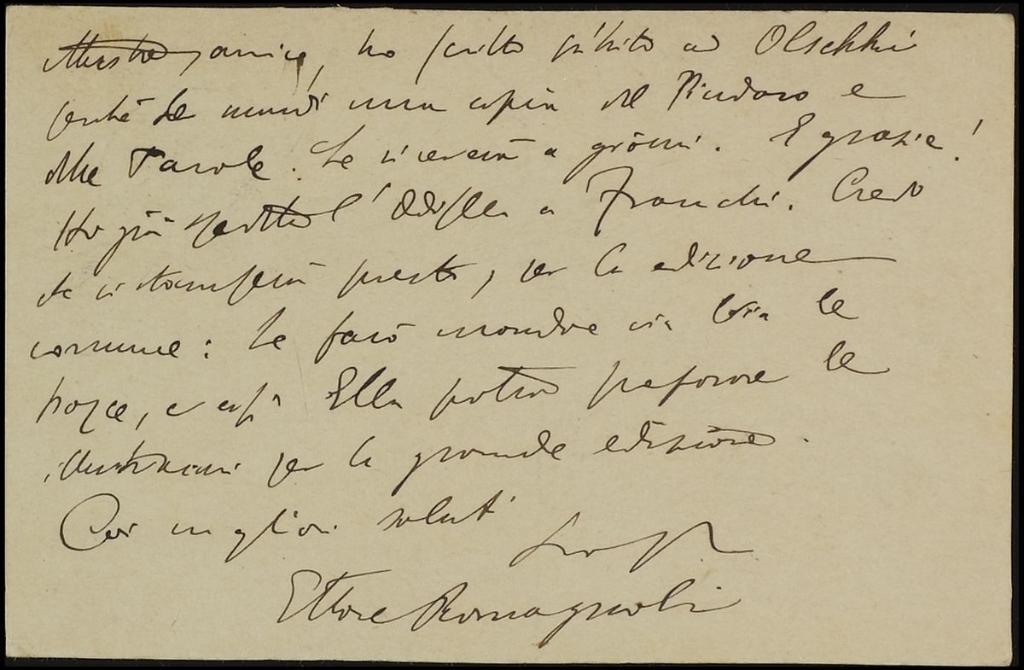 Illustre amico, ho scritto subito ad Olschki
perché Le mandi una copia del Pindaro e
delle Tavole. Le riceverà a giorni. E grazie!
Ho già spedito l'Odissea a Franchi. Credo
che si stamperà presto, per la edizione
comune: Le farò mandare via via le
bozze, e così Ella potrà preparare le
illustrazioni per la grande edizione.
Coi migliori saluti
Suo
Ettore Romagnoli